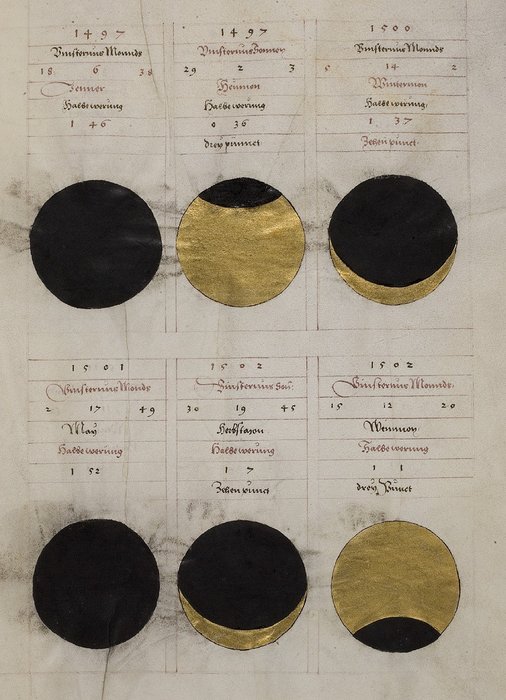 1 4 9 7
Vinsternus Monnds
18 6 38
Jenner
Halbe werung
1 46
1 4 9 7
Vinsternus Sonnen
29 2 3
Heumon
Halbe werung
0 36
drey punnct
1 5 0 0
Vinsternus Monnds
5 14 2
Wintermon
Halbe werung
1 37
Zehen punct
1 5 0 1
Vinsternus Monnds
2 17 49
May
Halbe werung
1 52
1 5 0 2
Vinsternus
30 19 45
Herbstmon
Halbe werung
1 7
Zehen punct
1 5 0 2
Vinsternus Monnds
15 12 20
Weinmon
Halbe werung
1 1
drey Punct